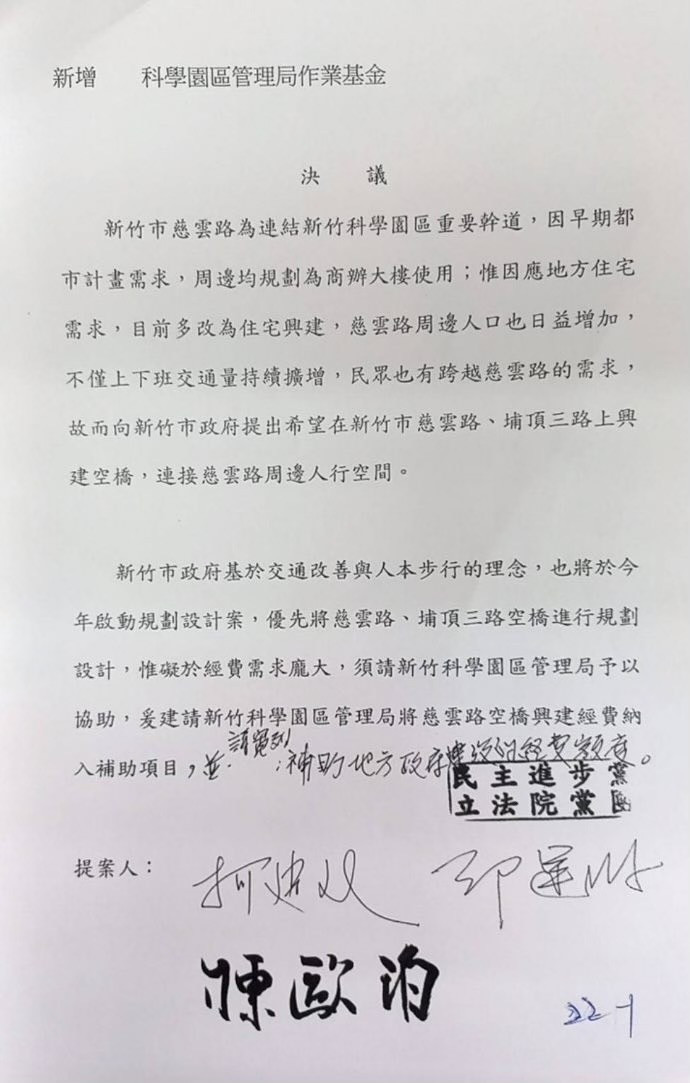 新增　　科學園區管理局作業基金
決　　議
新竹市慈雲路為連結新竹科學園區重要幹道，因早期都
市計畫需求，周邊均規劃為商辦大樓使用；惟因應地方住宅
需求，目前多改為住宅興建，慈雲路周邊人口也日益增加，
不僅上下班交通量持續擴增，民眾也有跨越慈雲路的需求，
故而向新竹市政府提出希望在新竹市慈雲路、埔頂三路上興
建空橋，連接慈雲路周邊人行空間。
新竹市政府基於交通改善與人本步行的理念，也將於今
年啟動規劃設計案，優先將慈雲路、埔頂三路空橋進行規劃
設計，惟礙於經費需求龐大，須請新竹科學園區管理局予以
協助，爰建請新竹科學園區管理局將慈雲路空橋興建經費納
入補助項目，並
補助地方政府
經費額度。
民主進步黨
立法院黨團
提案人：
柯建 邱
陳歐珀
22-1